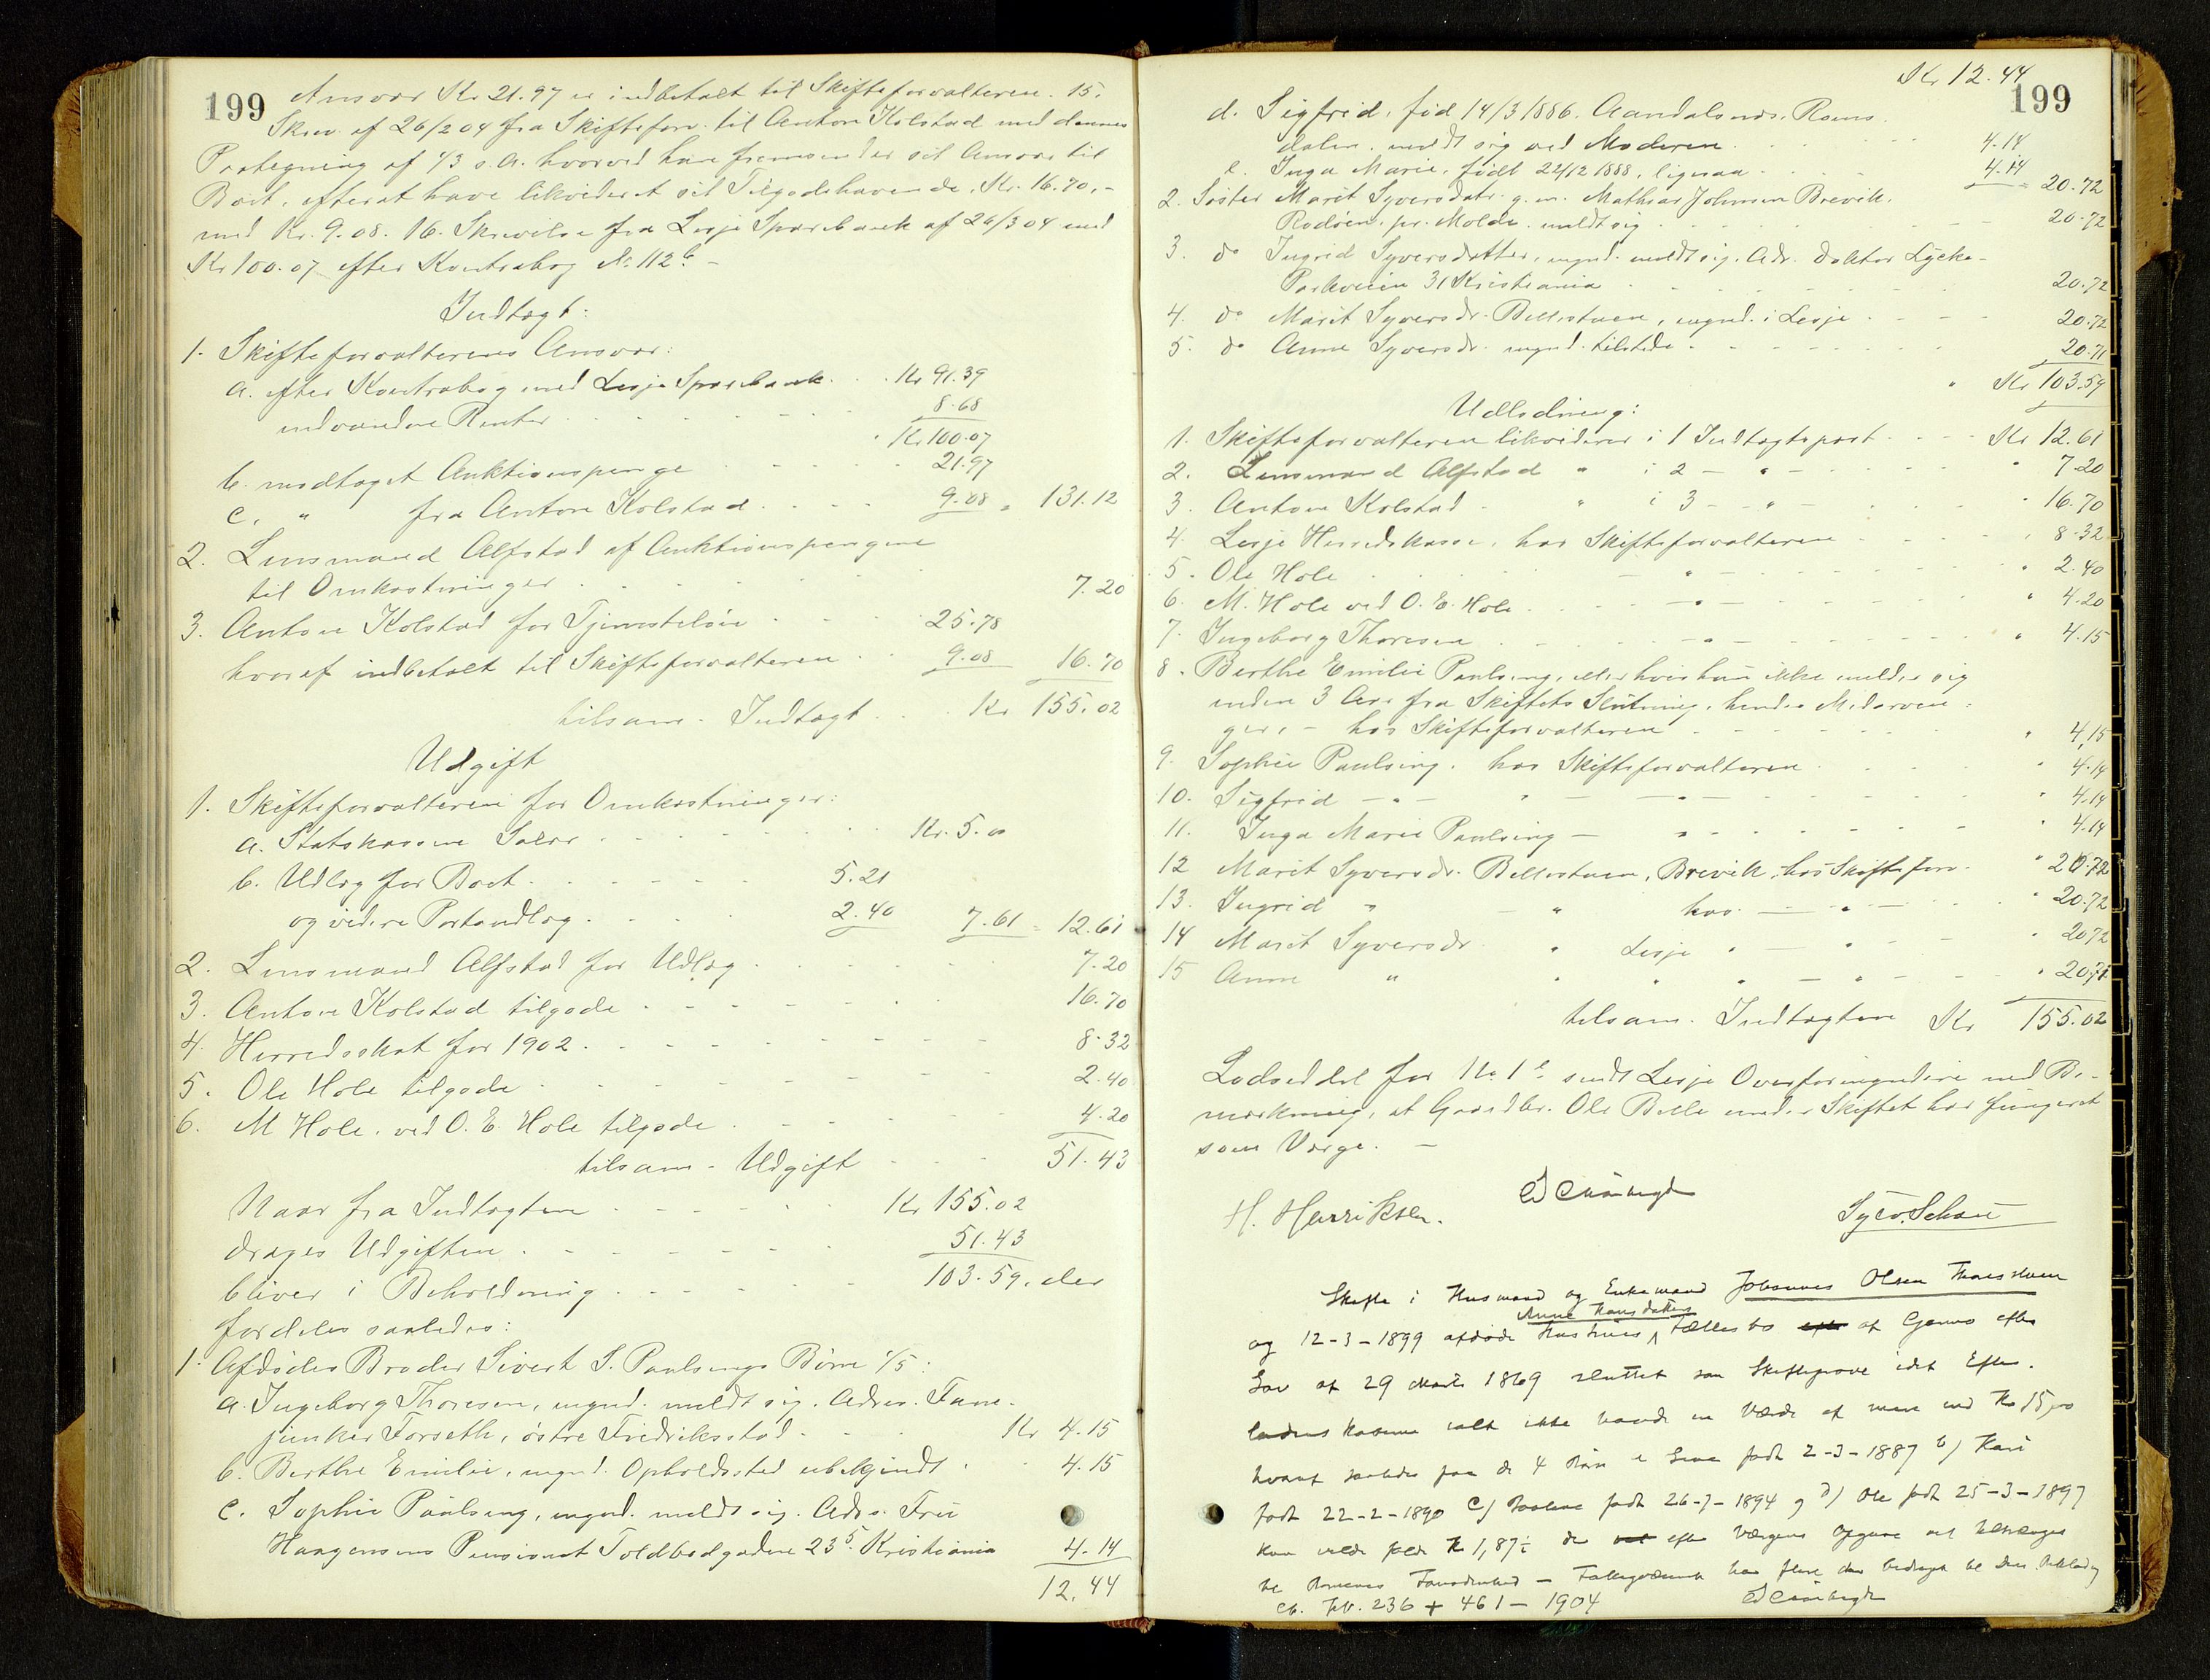 199
Ansvar Kr 21.97 er indbetalt til Skifteforvalteren. 15.
Skriv. af 26/2 04 fra Skifteforv. til Anton Kolstad med dennes
Paategning af 1/3 s.A. hvorved han fremsender sit Ansvar til
Boet, efterat have likvideret sit Tilgodehavende, Kr. 16.70,-
med Kr. 9.08. 16. Skrivelse fra Lesje Sparebank af 26/3 04 med
Kr 100.07 efter Kontrabog No. 112 b -
Indtægt:
1. Skifteforvalterens Ansvar:
a. efter Kontrabog med Lesje Sparebank . . Kr 91.39
indvundne Renter . . . 8.68
" Kr 100.07
b. modtaget Auktionspenge . . . 21.97
c. " fra Anton Kolstad . . . 9.08 = 131.12
2. Lensmand Alfstad af Auktionspengene
til Omkostninger . . . 7.20
3. Anton Kolstad for Tjenesteløn . . . 25.78
hvoraf indbetalt til Skifteforvalteren . . 9.08 16.70
tilsam. Indtægt . . . Kr 155.02
Udgift
1. Skifteforvalteren for Omkostninger:
a. Statskassens Salær . . . Kr. 5.00
b. Udlæg for Boet . . . 5.21
og videre Portoudlæg . . . 2.40 7.61 = 12.61
2. Lensmand Alfstad for Udlæg . . . 7.20
3. Anton Kolstad tilgode . . . 16.70
4. Herredsskat for 1902 . . . 8.32
5. Ole Hole tilgode . . . 2.40
6. M Hole, ved O. E. Hole tilgode . . . 4.20
tilsam. Udgift . . . 51.43
Naar fra Indtægten . . . Kr 155.02
drages Udgiften . . . 51.43
bliver i Beholdning . . . 103.59, der
fordeles saaledes:
1. Afdødes Broder Sivert S. Paulsengs Børn 1/5:
a. Ingeborg Thoresen, mynd. meldt sig. Adres. Fane-
junker Forseth, østre Fredriksstad . . . Kr 4.15
b. Berthe Emilie, mynd. Opholdssted ubekjendt . . 4.15
c. Sophie Paulseng, mynd. meldt sig. Adrs. Frü
Haagensens Pensionat Toldbodgaden 23 5. Kristiania 4.14
12,44
Kr 12.44
199
d. Sigfrid, fød 14/3 1886. Aandalsnes, Roms-
dalen, meldt sig ved Moderen . . . 4.14
e. Inga Marie, født 22/12 1888, ligesaa . . . 4.14 = 20.72
2. Søster Marit Syversdatr. g. m. Mathias Johnsen Brevik,
Rødøen, pr. Molde. meldt sig . . . 20.72
3. do Ingrid Syversdatter, mynd. meldt sig. Adr. Doktor Lycke-
Parkveien 31 Kristiania . . . 20.72
4. do Marit Syversdr. Bellestuen, mynd. i Lesje . . . 20.72
5. do Anne Syversdr. mynd. tilstede . . . 20.71
" Kr 103.59
Udlodning:
1. Skifteforvalteren likviderer i 1 Indtægtspost . . . Kr 12.61
2. Lensmand Alfstad " i 2 - " - . . . " 7.20
3. Anton Kolstad - " i 3 - " - . . . " 16.70
4. Lesje Herredskasse, hos Skifteforvalteren . . . " 8.32
5. Ole Hole . . . - " - . . . " 2.40
6. M. Hole ved O. E. Hole . . . - " - . . . " 4.20
7. Ingeborg Thoresen . . . - " - . . . " 4.15
8. Berthe Emilie Paulseng, eller hvis hun ikke melder sig
inden 3 Aar fra Skiftets Slutning, hendes Medarvin-
ger, - hos Skifteforvalteren . . . " 4,15
9. Sophie Paulseng. hos Skifteforvalteren . . . " 4.14
10. Sigfrid - " - " - " - . . . " 4.14
11. Inga Marie Paulseng - " . . . " 4.14
12 Marit Syversdr. Bellestuen, Brevik, hos Skifteforv. " 20.72
13. Ingrid " - " hos - " - . . . " 20.72
14 Marit Syversdr " Lesje " - " - . . . " 20.72
15 Anne " " " " - " - . . . " 20,71
tilsam. Indtægten Kr 155.02
Lodseddel for No. 1 e. sendt Lesje Overformynderi med Be-
mærkning, at Gaardbr. Ole Belle under Skiftet har fungeret
som Værge. -
H. Henriksen.
Syv. Schou
Skifte i Husmand og Enkemand Johannes Olsen
Anne Hansdatters
og 12-3-1899 afdøde Hustrues Fællesbo af efter
Lov af 29 Marts 1869 sluttet som Skifteprøve idet Efter-
ialt ikke havde en Værdi af mere end Kr 15,00
hvoraf saaledes paa de 4 Børn født 2-3-1887 b) Kari
født 22-2-1890 c) født 26-7-1894 og d) Ole født 25-3-1897
kun vilde falde Kr 1,87½ der efter Værgens Opgave
til Børnenes -
236 + 461 - 1904